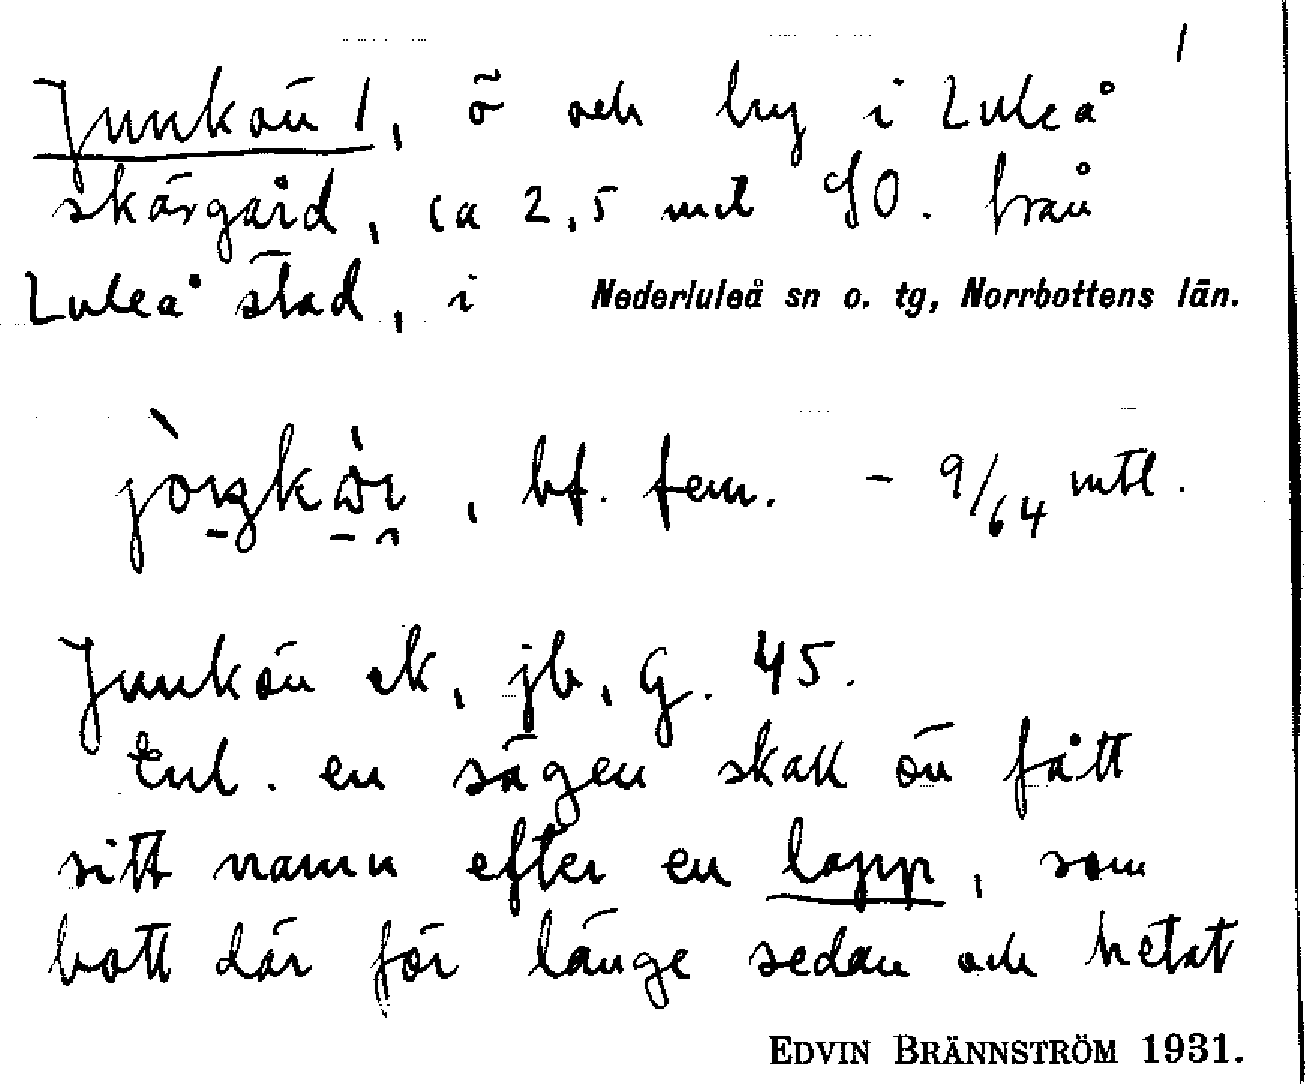 1
Junkön 1, ö och by i Luleå
skärgård, ca 2,5 mil SO. från
Luleå stad, i Nederluleå sn o. tg, Norrbottens län.
, bf. fem. – 9/64 mtl.
Junkön ek, jb, G. 45.
Enl. en sägen skall ön fått
sitt namn efter en lapp, som
bott där för länge sedan och hetat
EDVIN BRÄNNSTRÖM 1931.